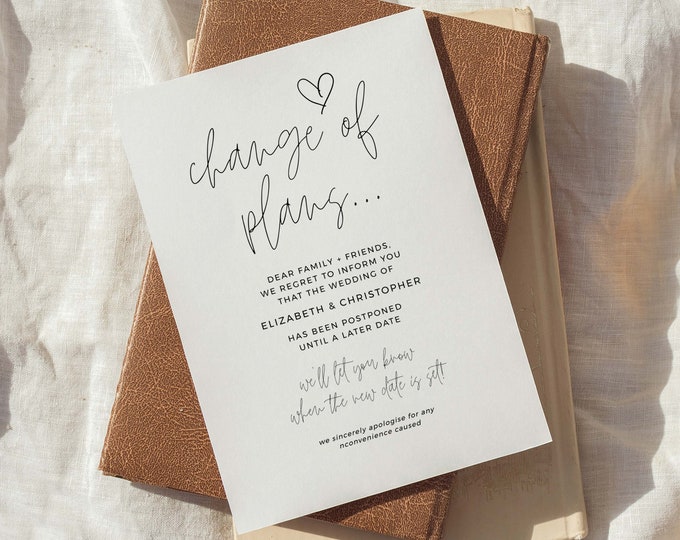 change of
plans...
DEAR FAMILY + FRIENDS,
WE REGRET TO INFORM YOU
THAT THE WEDDING OF
ELIZABETH & CHRISTOPHER
HAS BEEN POSTPONED
UNTIL A LATER DATE
we'll let you know
when the new date is set!
we sincerely apologise for any
nconvenience caused